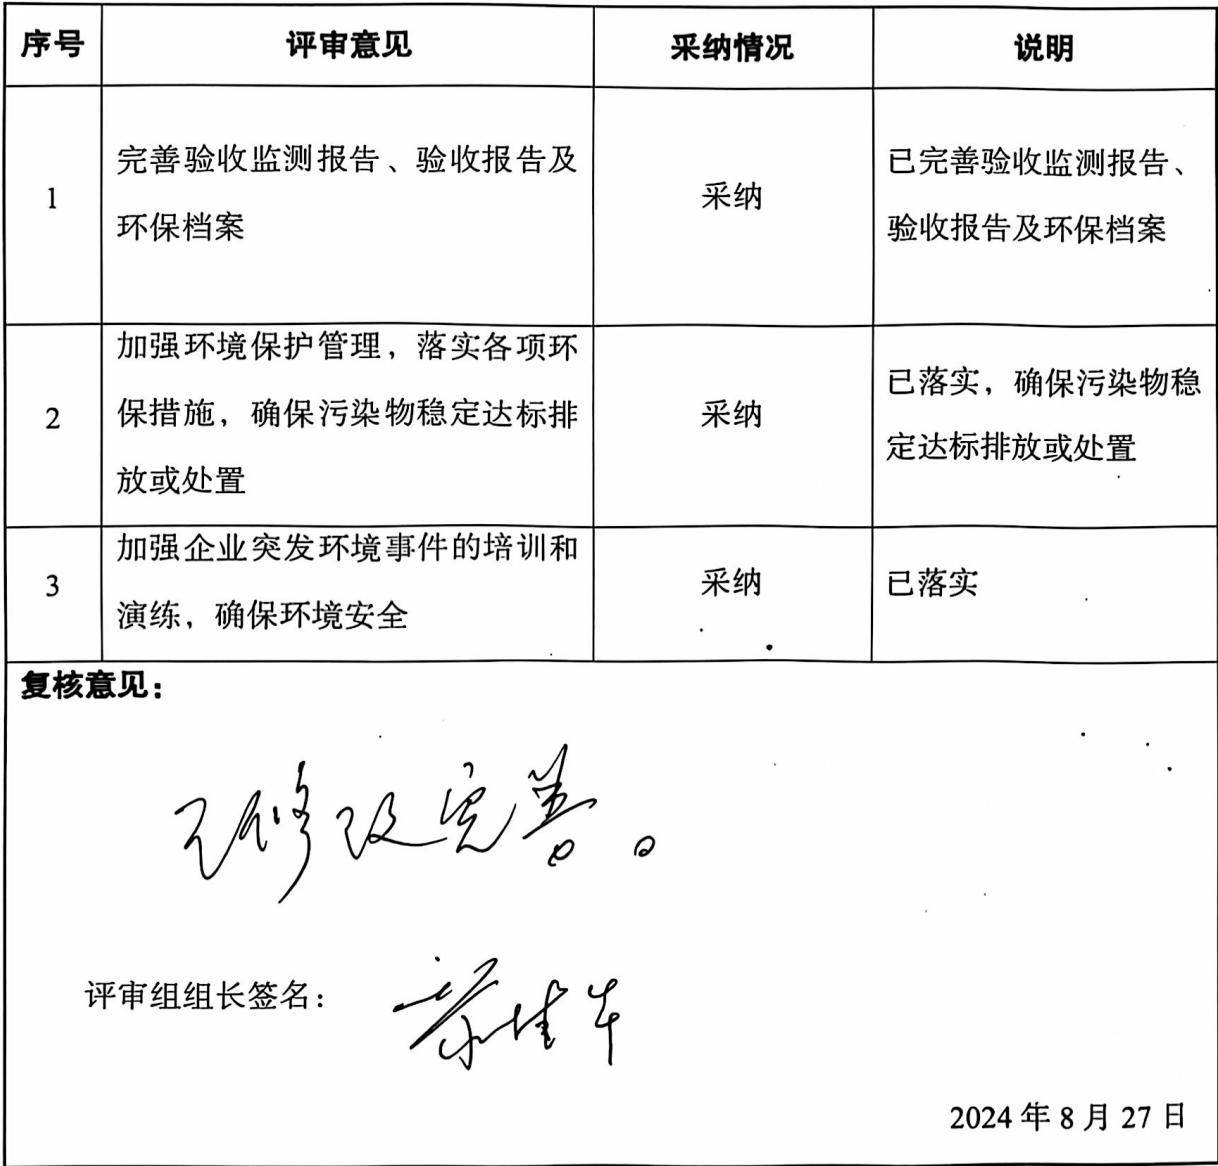 序号 评审意见 采纳情况 说明
1 完善验收监测报告、验收报告及环保档案 采纳 已完善验收监测报告、验收报告及环保档案
2 加强环境保护管理，落实各项环保措施，确保污染物稳定达标排放或处置 采纳 已落实，确保污染物稳定达标排放或处置
3 加强企业突发环境事件的培训和演练，确保环境安全 采纳 已落实
复核意见：
已修改完善。
评审组组长签名：
2024 年 8 月 27 日